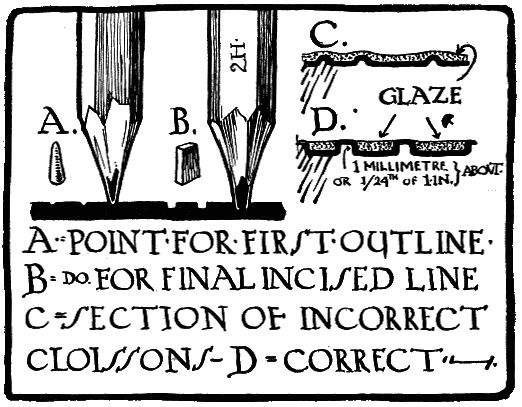 C.
2H.
GLAZE
A.
B.
D.
1 MILLIMETRE
OR 1/24TH OF 1·IN.
ABOUT.
A = POINT·FOR·FIRST·OUTLINE·
B = DO. FOR FINAL INCISED LINE
C = SECTION OF INCORRECT
CLOISSONS – D = CORRECT